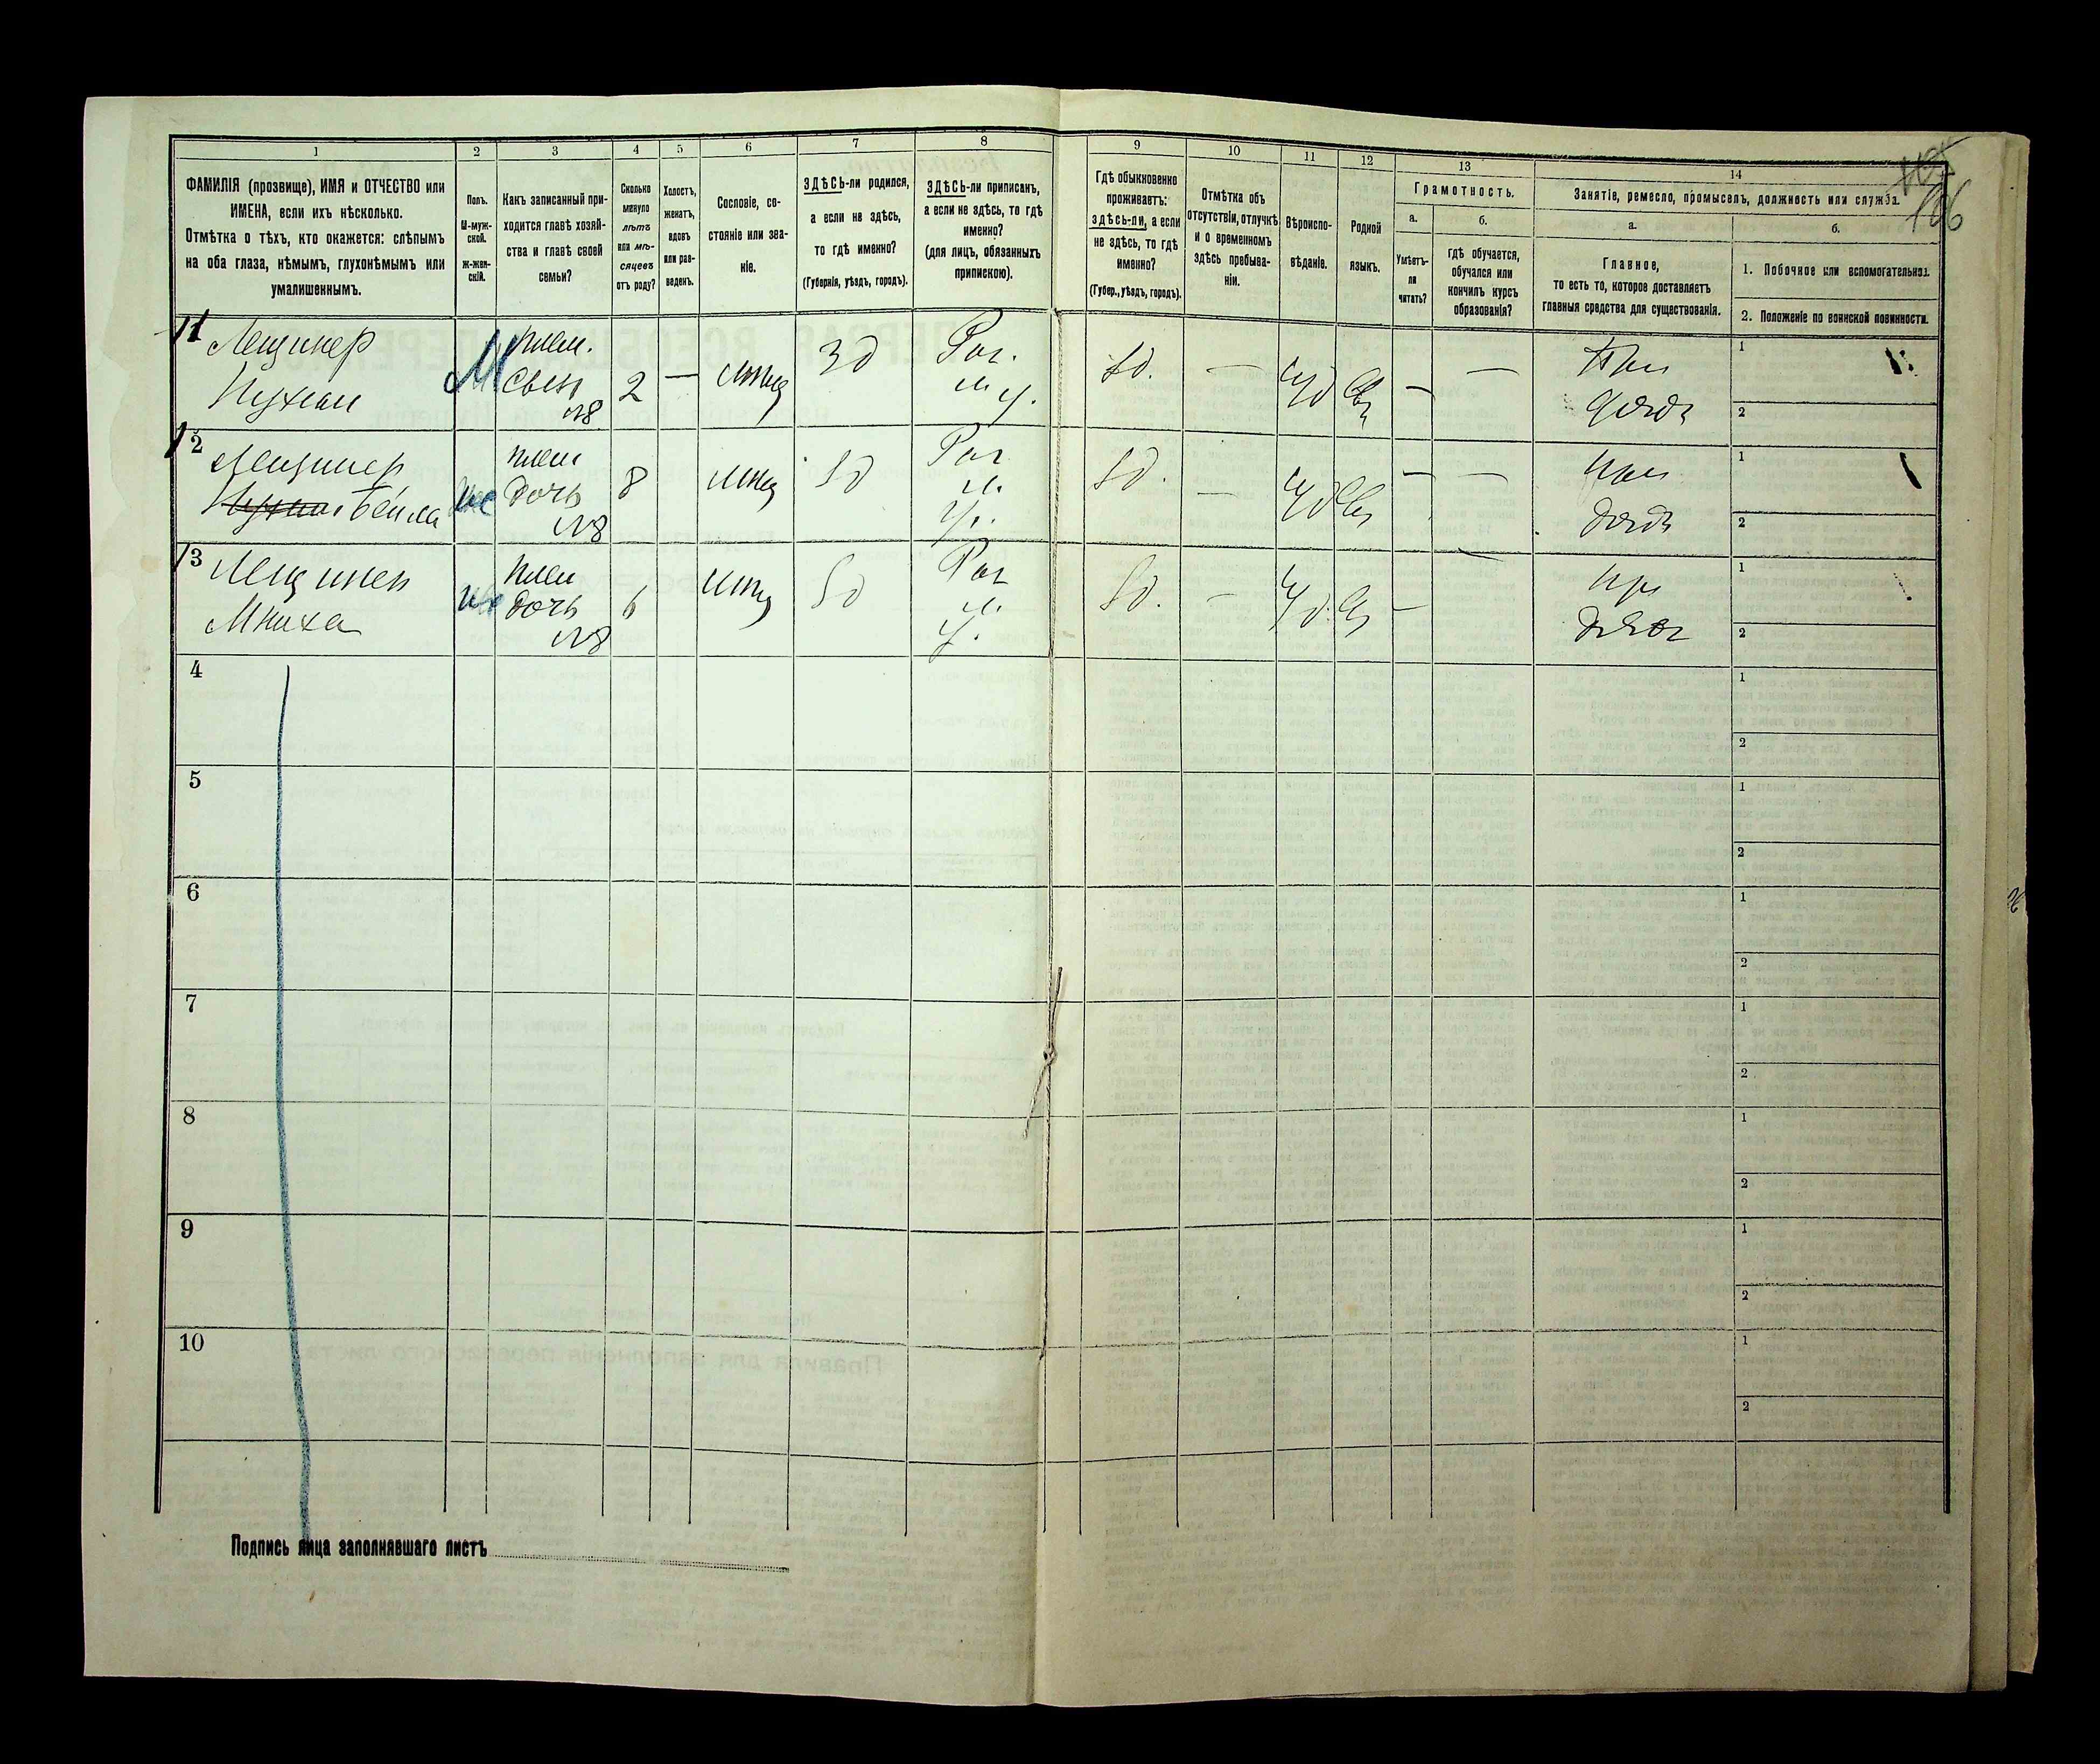 1
2
3
4
5
6
7
8
9
10
11
12
13
14
ФАМИЛІЯ (прозвище), ИМЯ и ОТЧЕСТВО или
ИМЕНА, если ихъ нѣсколько.
Отмѣтка о тѣхъ, кто окажется: слѣпымъ
на оба глаза, нѣмымъ, глухонѣмымъ или
умалишеннымъ.
Полъ.
М-муж-
ской.
Ж-жен-
скій.
Какъ записанный при-
ходится главѣ хозяй-
ства и главѣ своей
семьи?
Сколько
минуло
лѣтъ
или мѣ-
сяцевъ
отъ роду?
Холостъ,
женатъ,
вдовъ
или раз-
веденъ.
Сословіе, со-
стояніе или зва-
ніе.
ЗДѢСЬ-ли родился,
а если не здѣсь,
то гдѣ именно?
(Губернія, уѣздъ, городъ).
ЗДѢСЬ-ли приписанъ,
а если не здѣсь, то гдѣ
именно?
(для лицъ, обязанныхъ
припискою).
Гдѣ обыкновенно
проживаетъ:
здѣсь-ли, а если
не здѣсь, то гдѣ
именно?
(Губер., уѣздъ, городъ).
Отмѣтка объ
отсутствіи, отлучкѣ
и о временномъ
здѣсь пребыва-
ніи.
Вѣроиспо-
вѣданіе.
Родной
языкъ.
Грамотность.
а.
Умѣетъ-
ли
читать?
б.
гдѣ обучается,
обучался или
кончилъ курсъ
образованія?
Занятіе, ремесло, промыселъ, должность или служба.
а.
Главное,
то есть то, которое доставляетъ
главныя средства для существованія.
б.
1. Побочное или вспомогательное.
2. Положеніе по воинской повинности.
106
11
Лещинер
Нухим
М
плем.
сын
№8
2
—
мѣщ
Зд
Рог.
м. у.
Зд.
—
—
—
При
отцѣ
1
2
12
Лещинер
Бейла
плем
дочь
№8
8
мѣщ
Зд
Рог
м.
у.
Зд.
—
—
—
при
1
2
13
Лещинер
Мниха
плем
дочь
№8
6
мѣщ
Зд
Рог
м.
у.
Зд.
—
—
—
при
1
2
4
1
2
5
1
2
6
1
2
7
1
2
8
1
2
9
1
2
10
1
2
Подпись лица заполнявшаго листъ